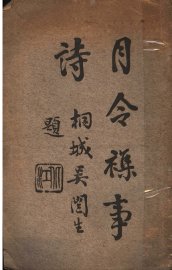 月令襍事
詩
桐城吳闓生
題